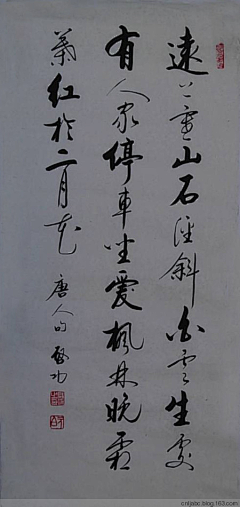 遠上寒山石徑斜白雲生處
有人家停車坐愛楓林晚霜
葉紅於二月花
唐人句 啟功